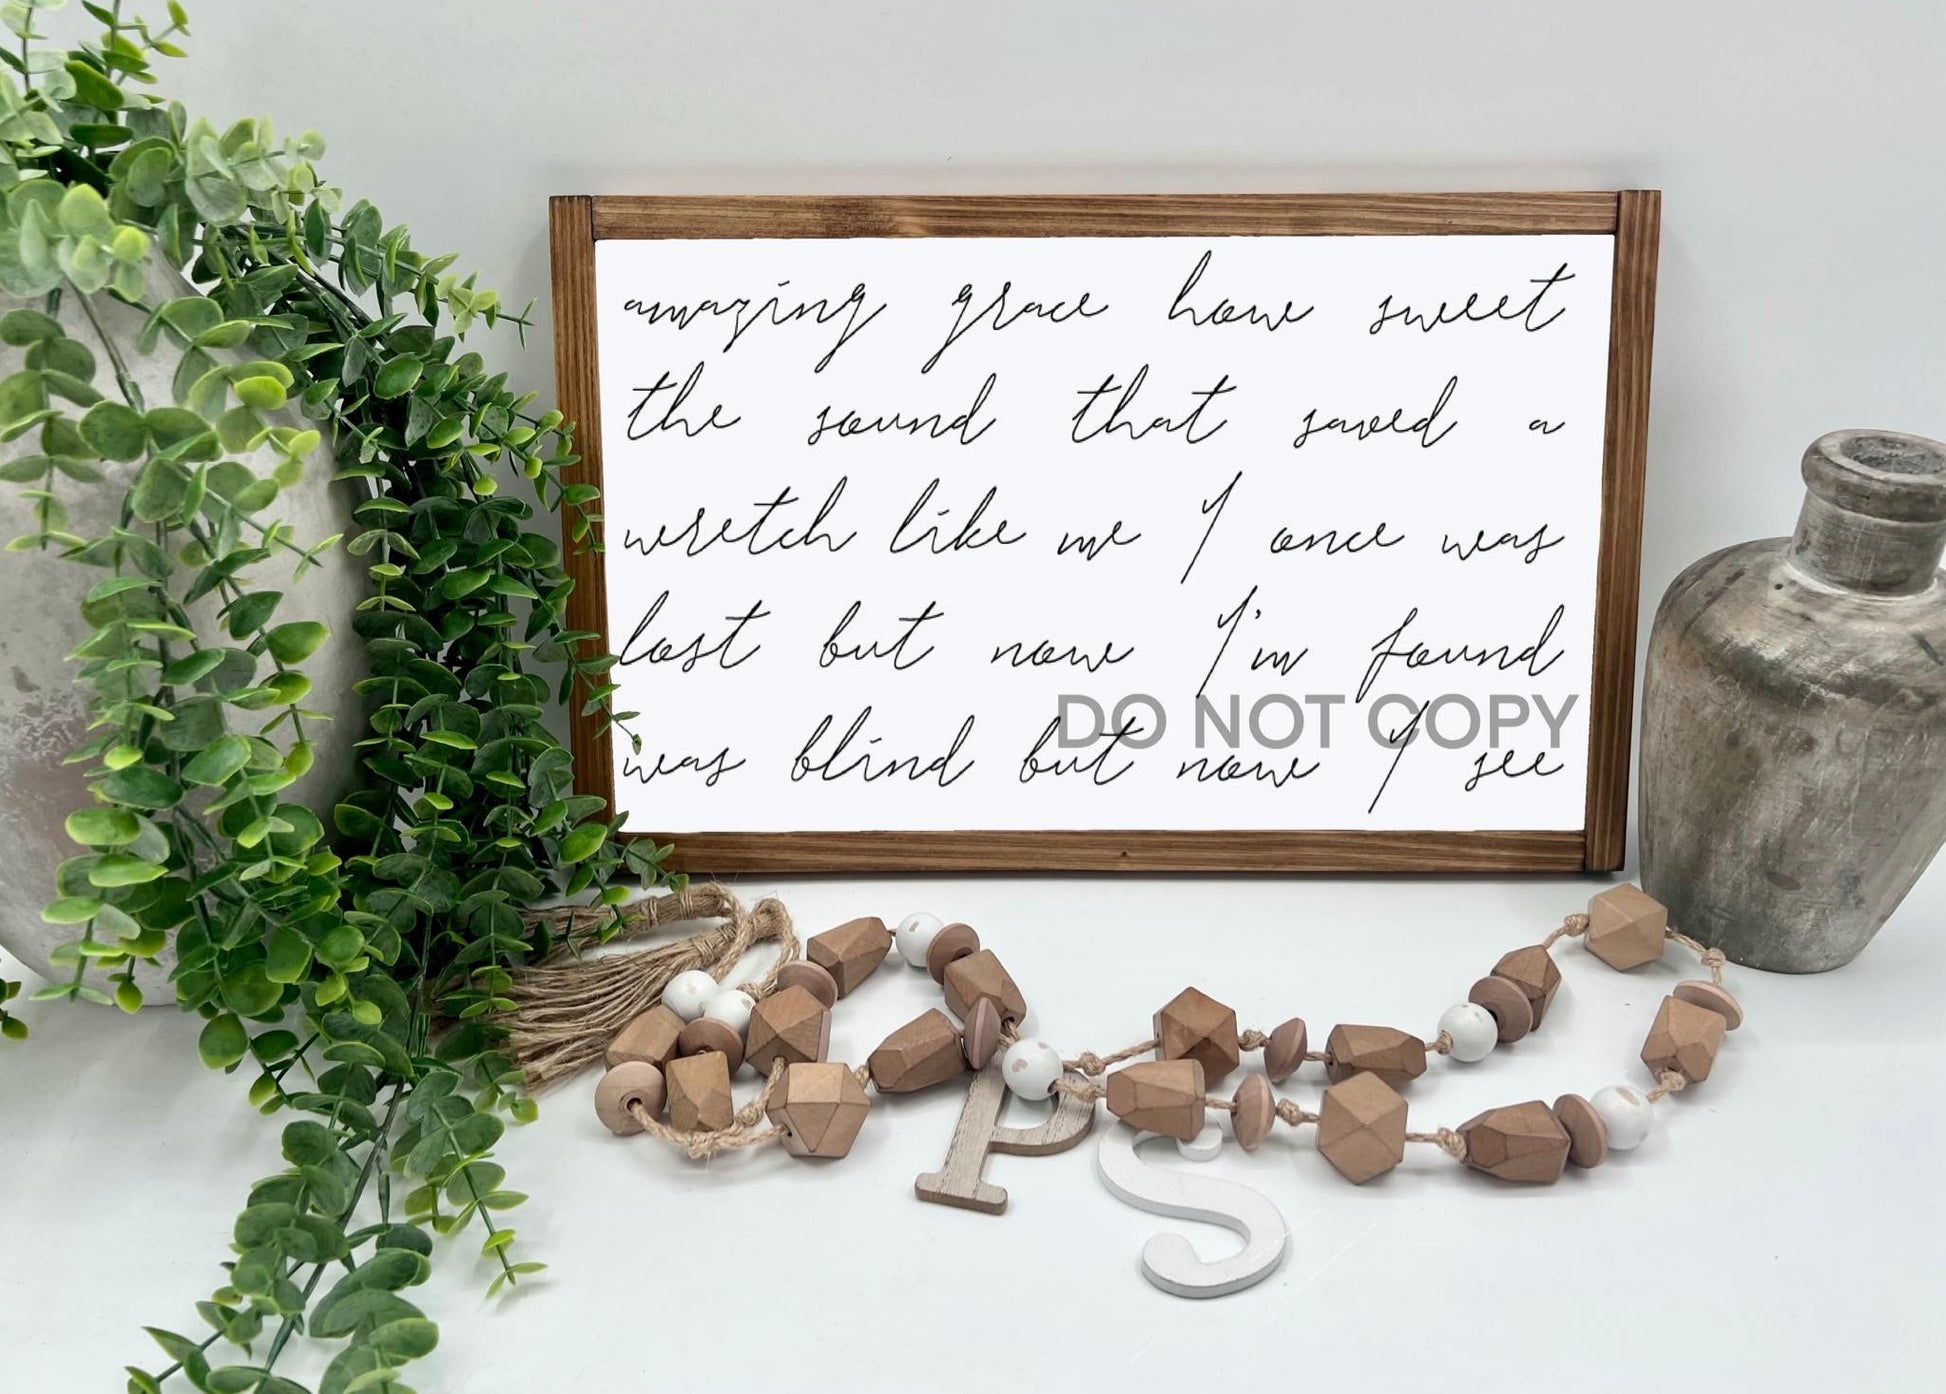 amazing grace how sweet
the sound that saved a
wretch like me I once was
lost but now I'm found
DO NOT COPY
was blind but now I see
P
S